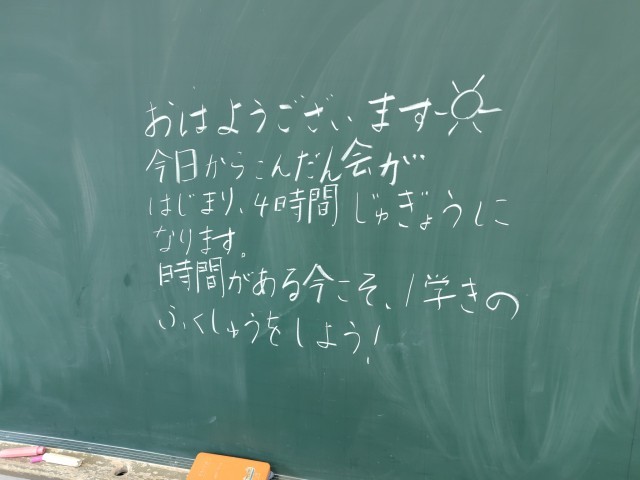 おはようございます
今日からこんだん会が
はじまり、4時間じゅぎょうに
なります。
時間がある今こそ、1学きの
ふくしゅうをしよう!